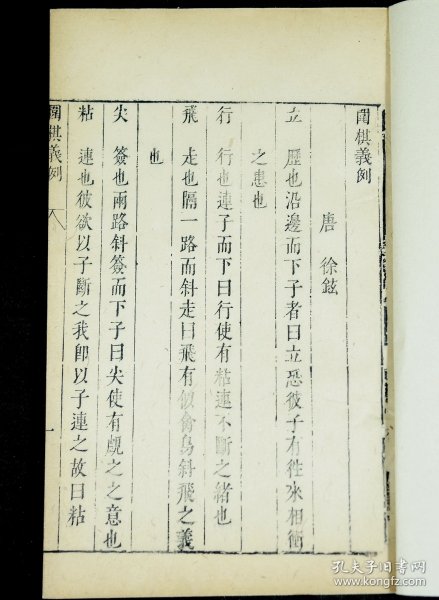 圍棋義例
唐 徐鉉
立 歷也沿邊而下子者曰立恐彼子有往來相衝
之患也
行 行也連子而下曰行使有粘連不斷之緒也
飛 走也隔一路而斜走曰飛有似禽鳥斜飛之義
也
尖 簽也兩路斜簽而下子曰尖使有覷之之意也
粘 連也彼欲以子斷之我卽以子連之故曰粘
圍棋義例
一
孔夫子旧书网
www.kongfz.com